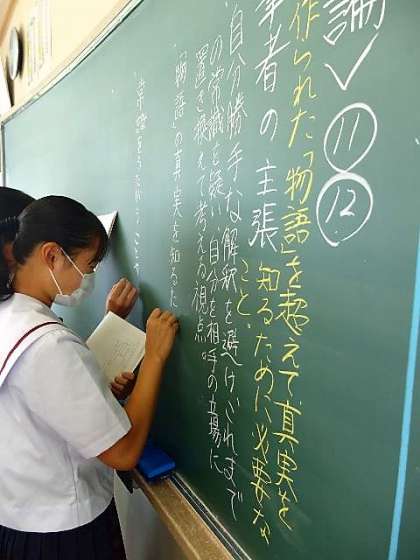 論 ✓ ⑪ ⑫
作られた「物語」を超えて真実を
筆者の主張
知るために必要な
こと。
・自分勝手な解釈を避け、これまで
の常識を疑い、自分を相手の立場に
置き換えて考える視点。
・「物語」の真実を知るた
・常識をうたがうことや